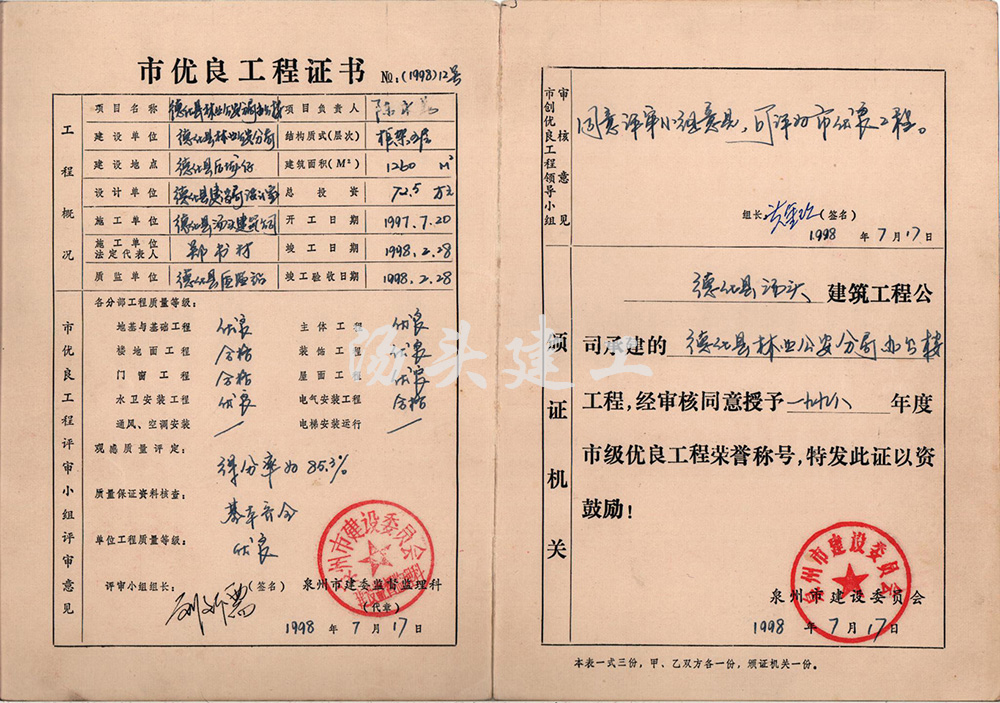 市优良工程证书 №:(1998)12号
工程概况
项目名称 德化县林业公安分局办公楼 项目负责人
建设单位 德化县林业公安分局 结构质式(层次) 框架五层
建设地点 德化县 建筑面积(M²) 1260 M²
设计单位 德化县 总投资 72.5 万元
施工单位 德化县汤头建筑公司 开工日期 1997.7.20
施工单位法定代表人 郑书村 竣工日期 1998.2.28
质监单位 德化县质监站 竣工验收日期 1998.2.28
市优良工程评审小组评审意见
各分部工程质量等级:
地基与基础工程 优良 主体工程 优良
楼地面工程 合格 装饰工程 优良
门窗工程 合格 屋面工程 优良
水卫安装工程 优良 电气安装工程 合格
通风、空调安装 / 电梯安装运行 /
观感质量评定:
得分率为85.3%
质量保证资料核查:
基本齐全
单位工程质量等级:
优良
评审小组组长: (签名) 泉州市建委监督监理科
(代章)
1998年7月17日
泉州市建设委员会
汤头建工
市创优良工程领导小组
审核意见
同意评审小组意见,可评为市优良工程。
组长 (签名)
1998年7月17日
颁证机关
德化县汤头 建筑工程公
司承建的 德化县林业公安分局办公楼
工程,经审核同意授予 一九九八 年度
市级优良工程荣誉称号,特发此证以资
鼓励!
泉州市建设委员会
泉州市建设委员会
1998年7月17日
本表一式三份,甲、乙双方各一份,颁证机关一份。